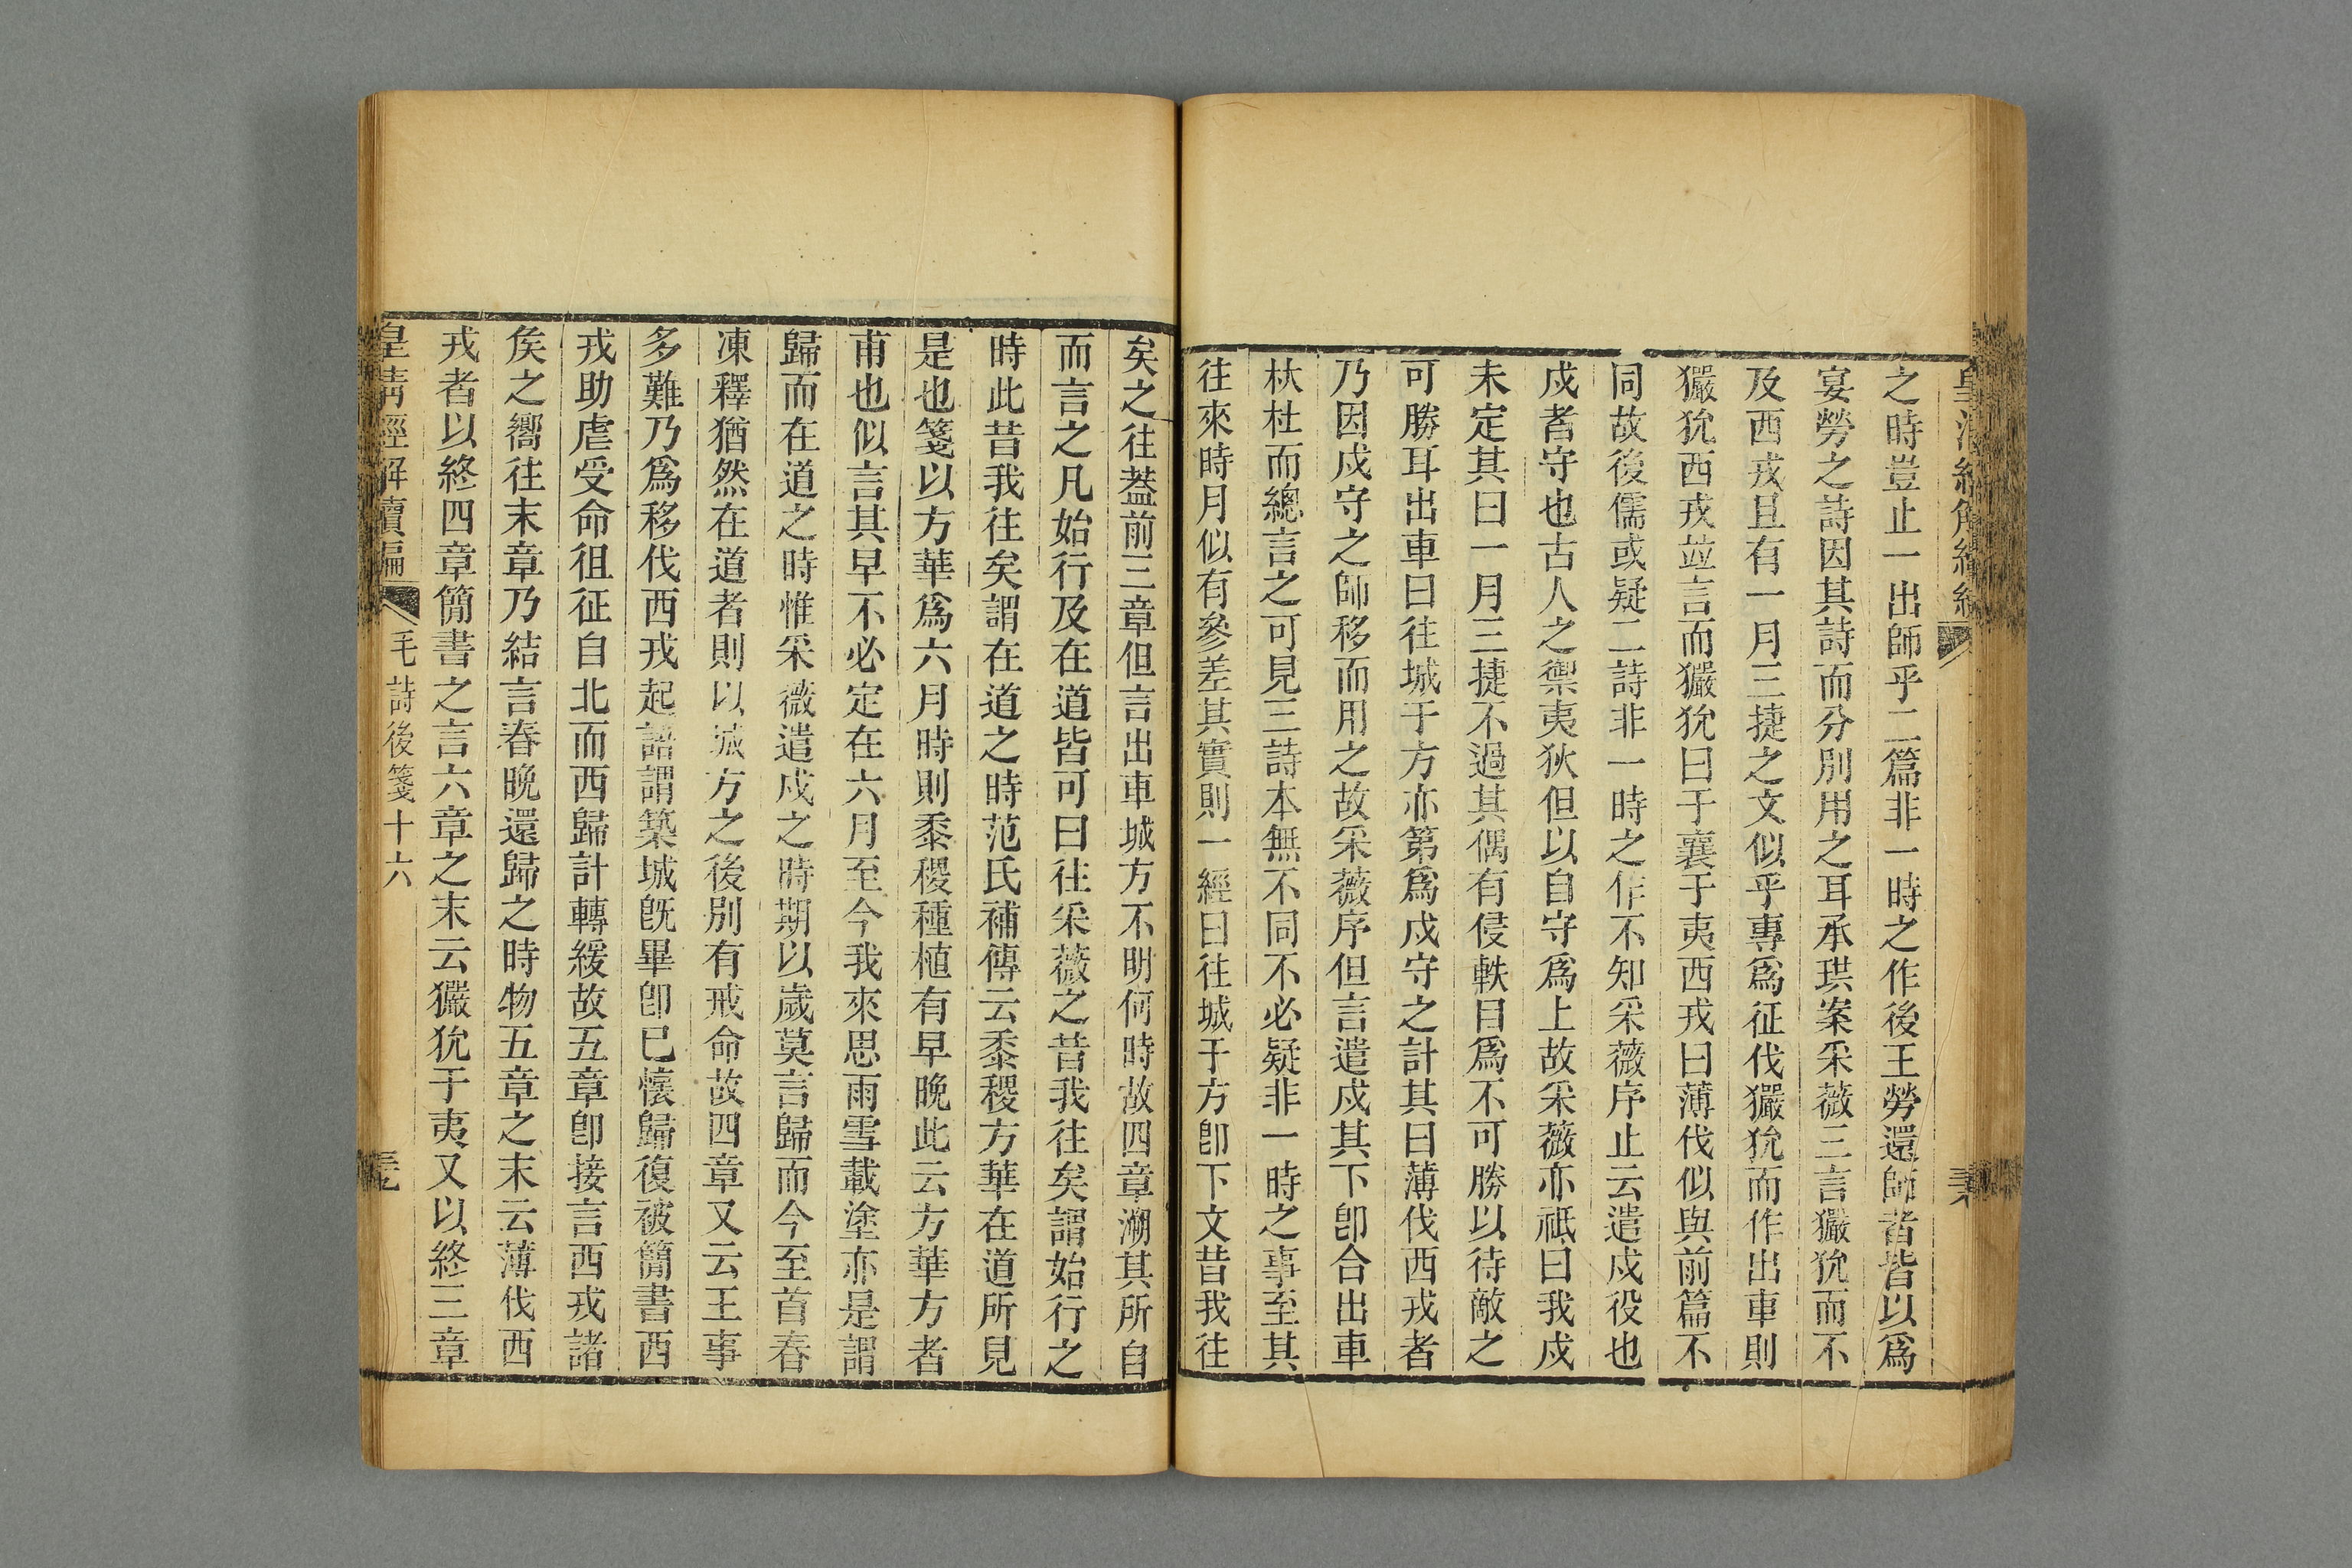 之時豈止一出師乎二篇非一時之作後王勞還師者皆以爲
宴勞之詩因其詩而分別用之耳承珙案采薇三言玁狁而不
及西戎且有一月三捷之文似乎專爲征伐玁狁而作出車則
玁狁西戎竝言而玁狁曰于襄于夷西戎曰薄伐似與前篇不
同故後儒或疑二詩非一時之作不知采薇序止云遣戍役也
戍者守也古人之禦夷狄但以自守爲上故采薇亦祇曰我戍
未定其曰一月三捷不過其偶有侵軼目爲不可勝以待敵之
可勝耳出車曰往城于方亦第爲戍守之計其曰薄伐西戎者
乃因戍守之師移而用之故采薇序但言遣戍其下卽合出車
杕杜而總言之可見三詩本無不同不必疑非一時之事至其
往來時月似有參差其實則一經曰往城于方卽下文昔我往
矣之往葢前三章但言出車城方不明何時故四章溯其所自
而言之凡始行及在道皆可曰往采薇之昔我往矣謂始行之
時此昔我往矣謂在道之時范氏補傳云黍稷方華在道所見
是也箋以方華爲六月時則黍稷種植有早晚此云方華方者
甫也似言其早不必定在六月至今我來思雨雪載塗亦是謂
歸而在道之時惟采薇遣戍之時期以歲莫言歸而今至首春
凍釋猶然在道者則以城方之後別有戒命故四章又云王事
多難乃爲移伐西戎起語謂築城旣畢卽已懷歸復被簡書西
戎助虐受命徂征自北而西歸計轉緩故五章卽接言西戎諸
矦之嚮往末章乃結言春晚還歸之時物五章之末云薄伐西
戎者以終四章簡書之言六章之末云玁狁于夷又以終三章
皇淸經解續編
毛詩後箋十六